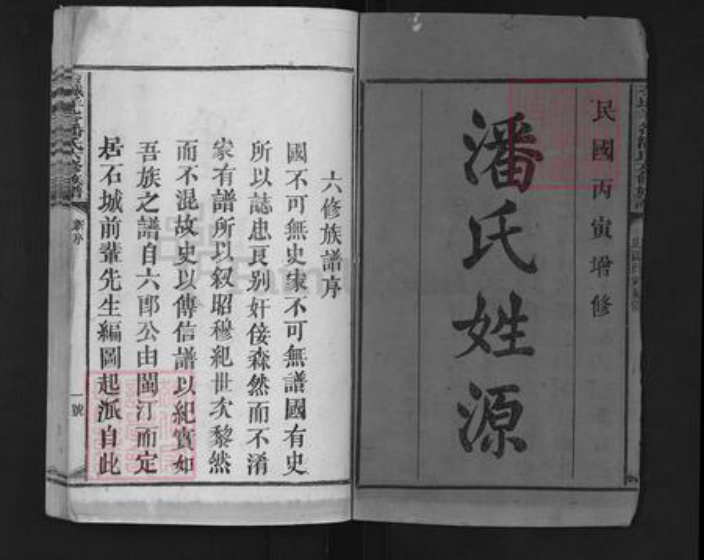 民國丙寅增修
潘氏姓源
六修族譜序
國不可無史家不可無譜國有史
所以誌忠良別奸佞森然而不淆
家有譜所以叙昭穆紀世次黎然
而不混故史以傳信譜以紀實如
吾族之譜自六郎公由閩汀而定
居石城前輩先生編圖起派自此
一號